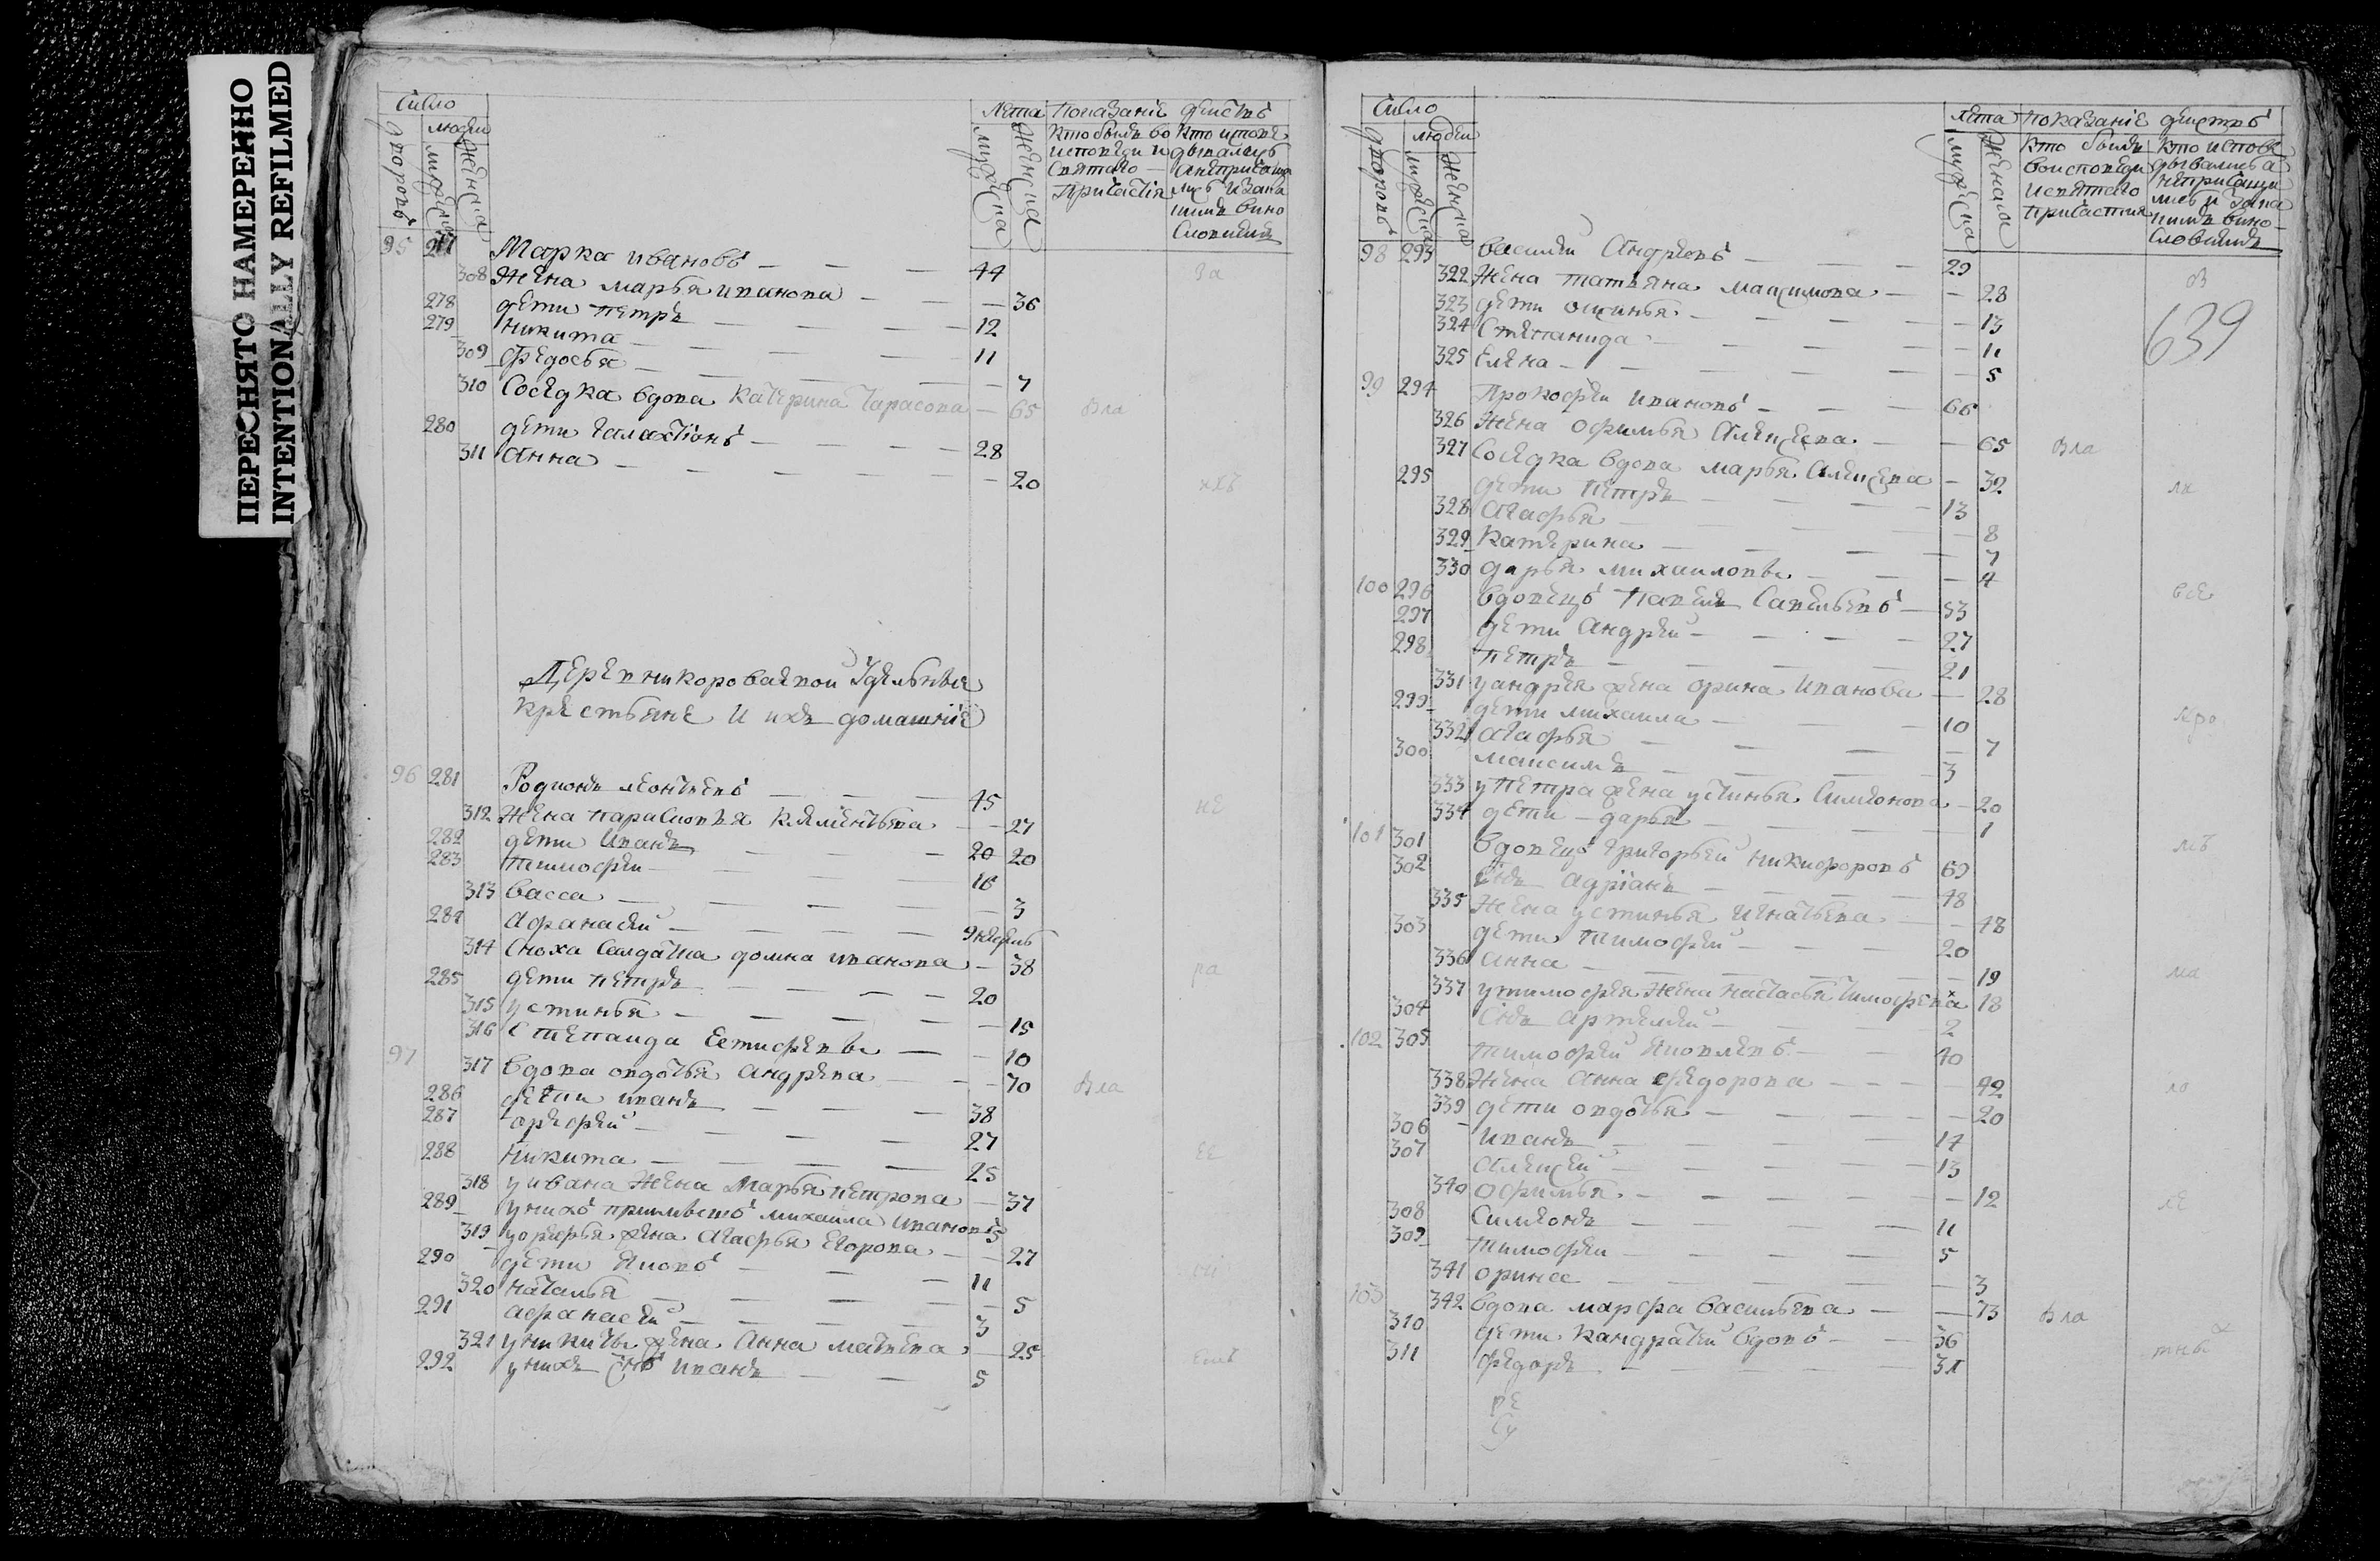 ПЕРЕСНЯТО НАМЕРЕННО
INTENTIONALLY REFILMED
Число
дворовъ
людей
мужеска
женска
Лѣта
мужеска
женска
Показаніе действъ
кто былъ во
исповеди и
святаго
Причастія
кто испове
дывались
а не причаща
лись и за ка
кимъ вино
словиемъ
95 277 Марка Ивановъ — 44 за
308 Жена марья иванова — 36
278 дети петръ — 12
279 никита — 11
309 федосья — 7
310 Соседка вдова Катерина Тарасова — 65 вла
280 дети галахтіонъ — 28
311 Анна — 20
Деревни короваевой Удельныя
крестьяне и ихъ домашніе
96 281 Родионъ леонтиевъ — 45 не
312 Жена парасковья клементьева — 27
282 дети Иванъ — 20 20
283 тимофеи — 16
313 васса — 3
284 Афанасей — 9 недель
314 Сноха Салдатка домна иванова — 38 ра
285 дети петръ — 20
315 устинья — 15
316 Степанида — 10
97 317 вдова овдотья андреева — 70 вла
286 дети иванъ — 38
287 ефрей — 27
288 Никита — 25 ее
318 у ивана жена Марья петрова — 37
289 у нихъ михаила Ивановъ 5
319 жена Агафья Егорова — 27
290 дети Яковъ — 11
320 Наталья — 5
291 афанасей — 3
321 у никиты жена Анна матвеева — 25
292 у нихъ снъ иванъ — 5
Число
дворовъ
людей
мужеска
женска
Лѣта
мужеска
женска
показаніе действъ
кто былъ
во исповеди
и святаго
причастия
кто испове
дывались а
не причаща
лись и за ка
кимъ вино
словиемъ
639
98 293 василей Андреевъ — 29
322 Жена татьяна максимова — 28
323 дети оксинья — 13
324 Степанида — 11
325 Елена — 5
99 294 Прокофеи ивановъ — 66
326 Жена офимья Алексеева — 65 вла
327 Соседка вдова марья Алексеева — 32
295 дети петръ — 13
328 Агафья — 8
329 Катерина — 7
330 дарья михаилова — 4
100 296 вдовецъ павелъ Савельевъ — 53 все
297 дети Андрей — 27
298 петръ — 21
331 у андрея жена орина иванова — 28
299 дети михаила — 10 кро
332 Агафья — 7
300 максимъ — 3
333 у петра жена устинья Симеонова — 20
334 дети — дарья — 1
101 301 вдовецъ григорьей никифоровъ 69 мъ
302 Снъ адріанъ — 48
335 Жена устинья игнатьева — 48
303 дети тимофей — 20
336 анна — 19 ма
337 у тимофея жена настасья тимофеева 18
304 Снъ артемей — 2
102 305 тимофей Яковлевъ — 40
338 Жена анна федорова — 42 ло
339 дети овдотья — 20
306 иванъ — 17
307 Алексей — 13
340 офимья — 12 ле
308 Симеонъ — 11
309 тимофеи — 5
341 орина — 3
103 342 вдова марфа васильева — 73 вла
310 дети кандратей вдовъ — 36 тны
311 федоръ — 31